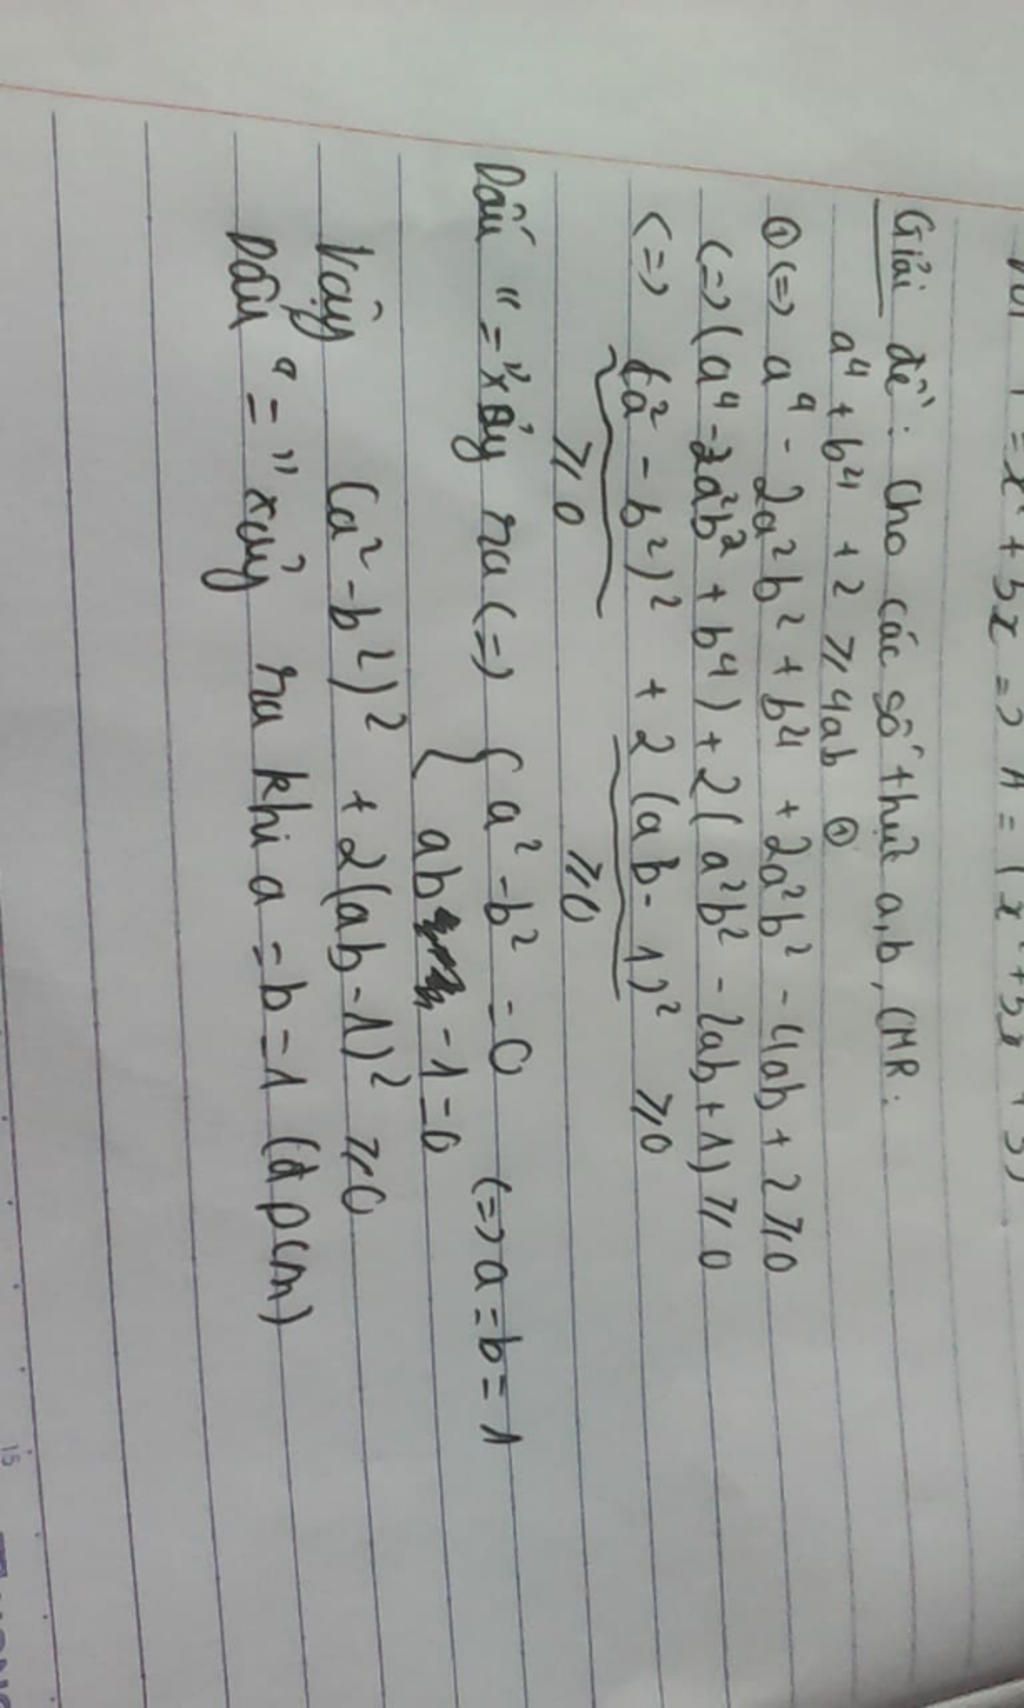 = x² + 5x => A = (x² + 5x + 5)
Giải đề: Cho các số thực a,b, CMR:
a⁴ + b⁴ + 2 ⩾ 4ab ①
① (=) a⁴ - 2a²b² + b⁴ + 2a²b² - 4ab + 2 ⩾ 0
(=) (a⁴ - 2a²b² + b⁴) + 2(a²b² - 2ab + 1) ⩾ 0
(=) (a² - b²)² + 2(ab - 1)² ⩾ 0
⩾ 0 ⩾ 0
Dấu "=" xảy ra (=) { a² - b² = 0 (=) a = b = 1
ab - 1 = 0
Vậy (a² - b²)² + 2(ab - 1)² ⩾ 0
Dấu "=" xảy ra khi a = b = 1 (đpcm)
15